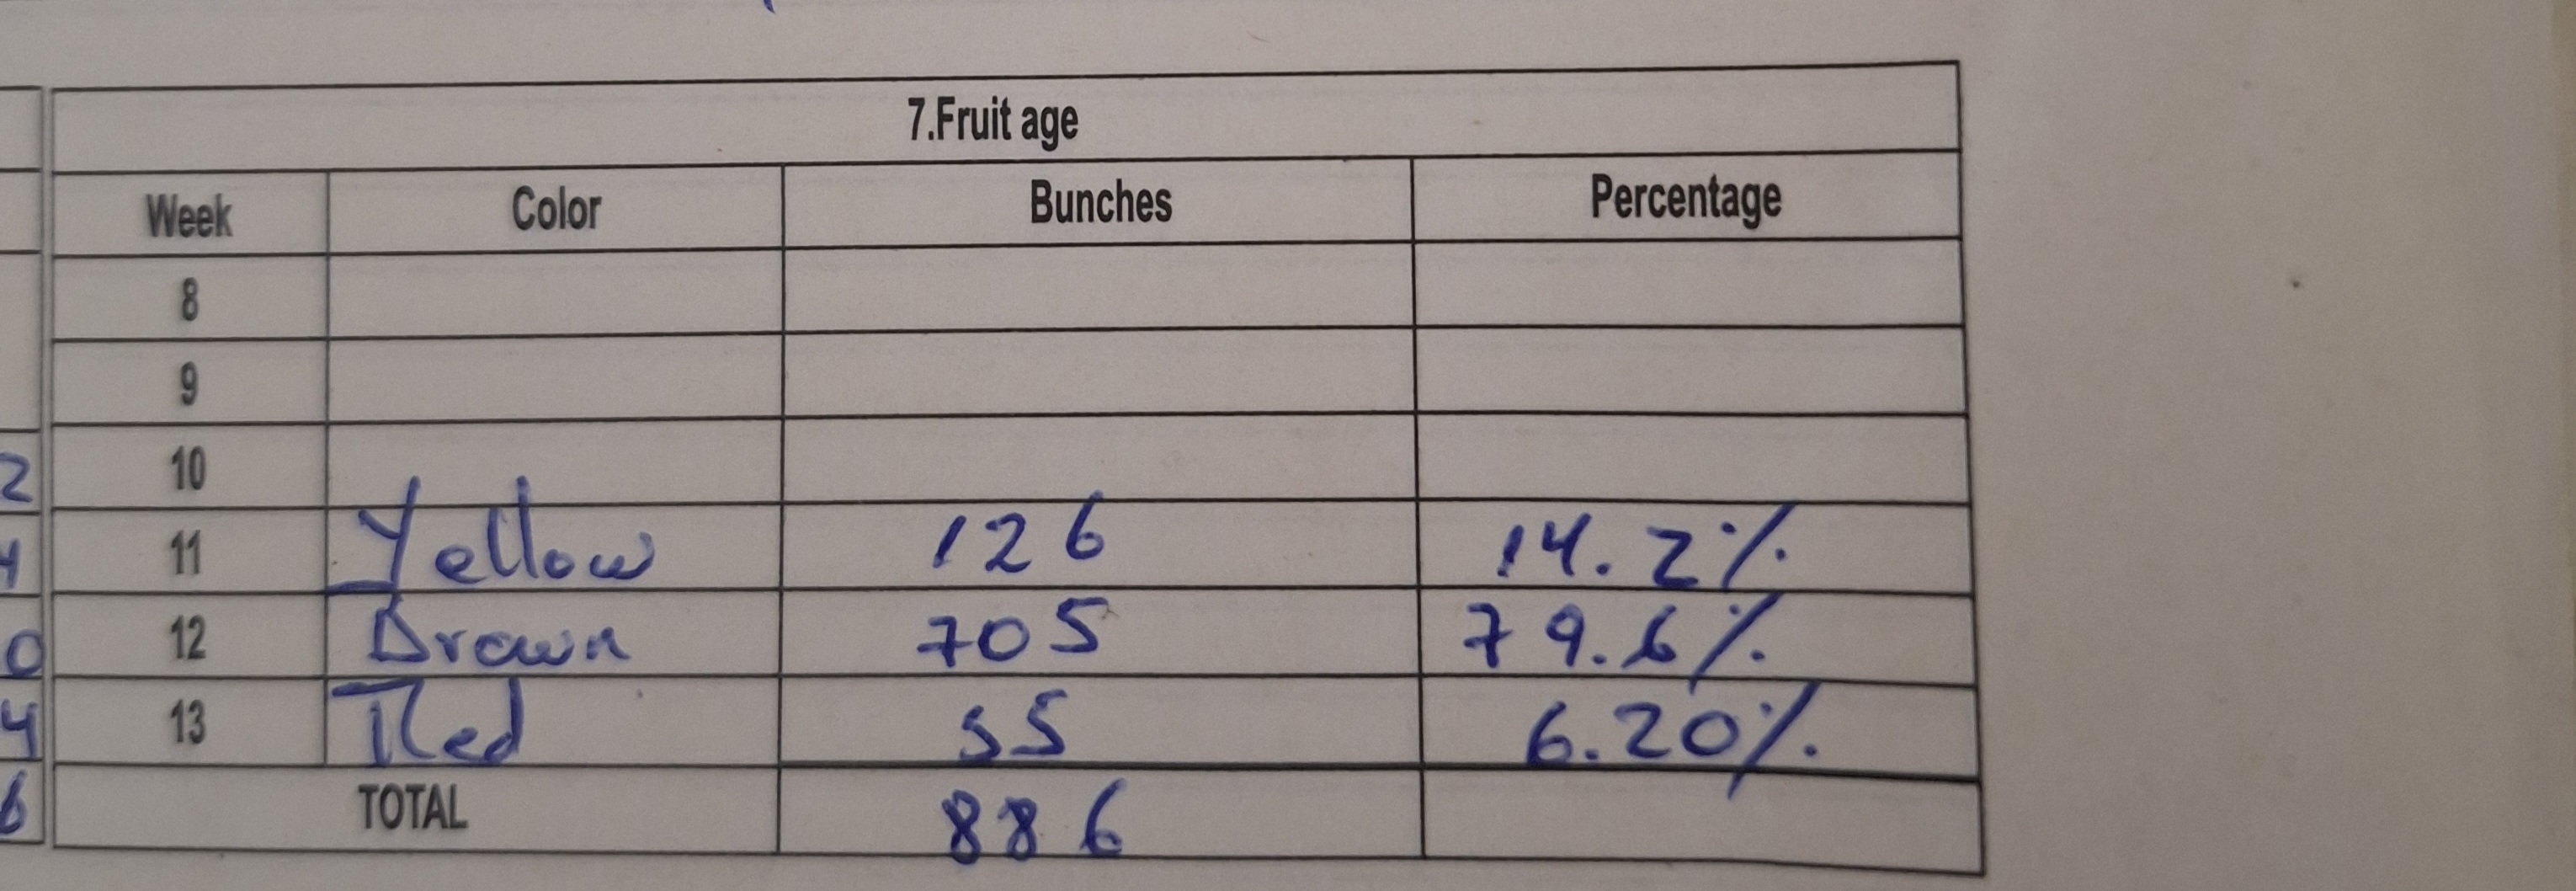 7.Fruit age
Week Color Bunches Percentage
8
9
2 10
4 11 Yellow 126 14.2%
0 12 Brown 705 79.6%
4 13 Red 55 6.20%
6 TOTAL 886